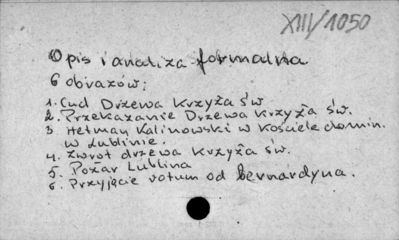 XIII/1050
Opis i analiza formalna
6 obrazów:
1. Cud Drzewa Krzyża św
2. Przekazanie Drzewa Krzyża św.
3. Hetman Kalinowski w Kościele domin.
w Lublinie.
4. Zwrot drzewa Krzyża św.
5. Pożar Lublina
6. Przyjęcie votum od bernardyna.